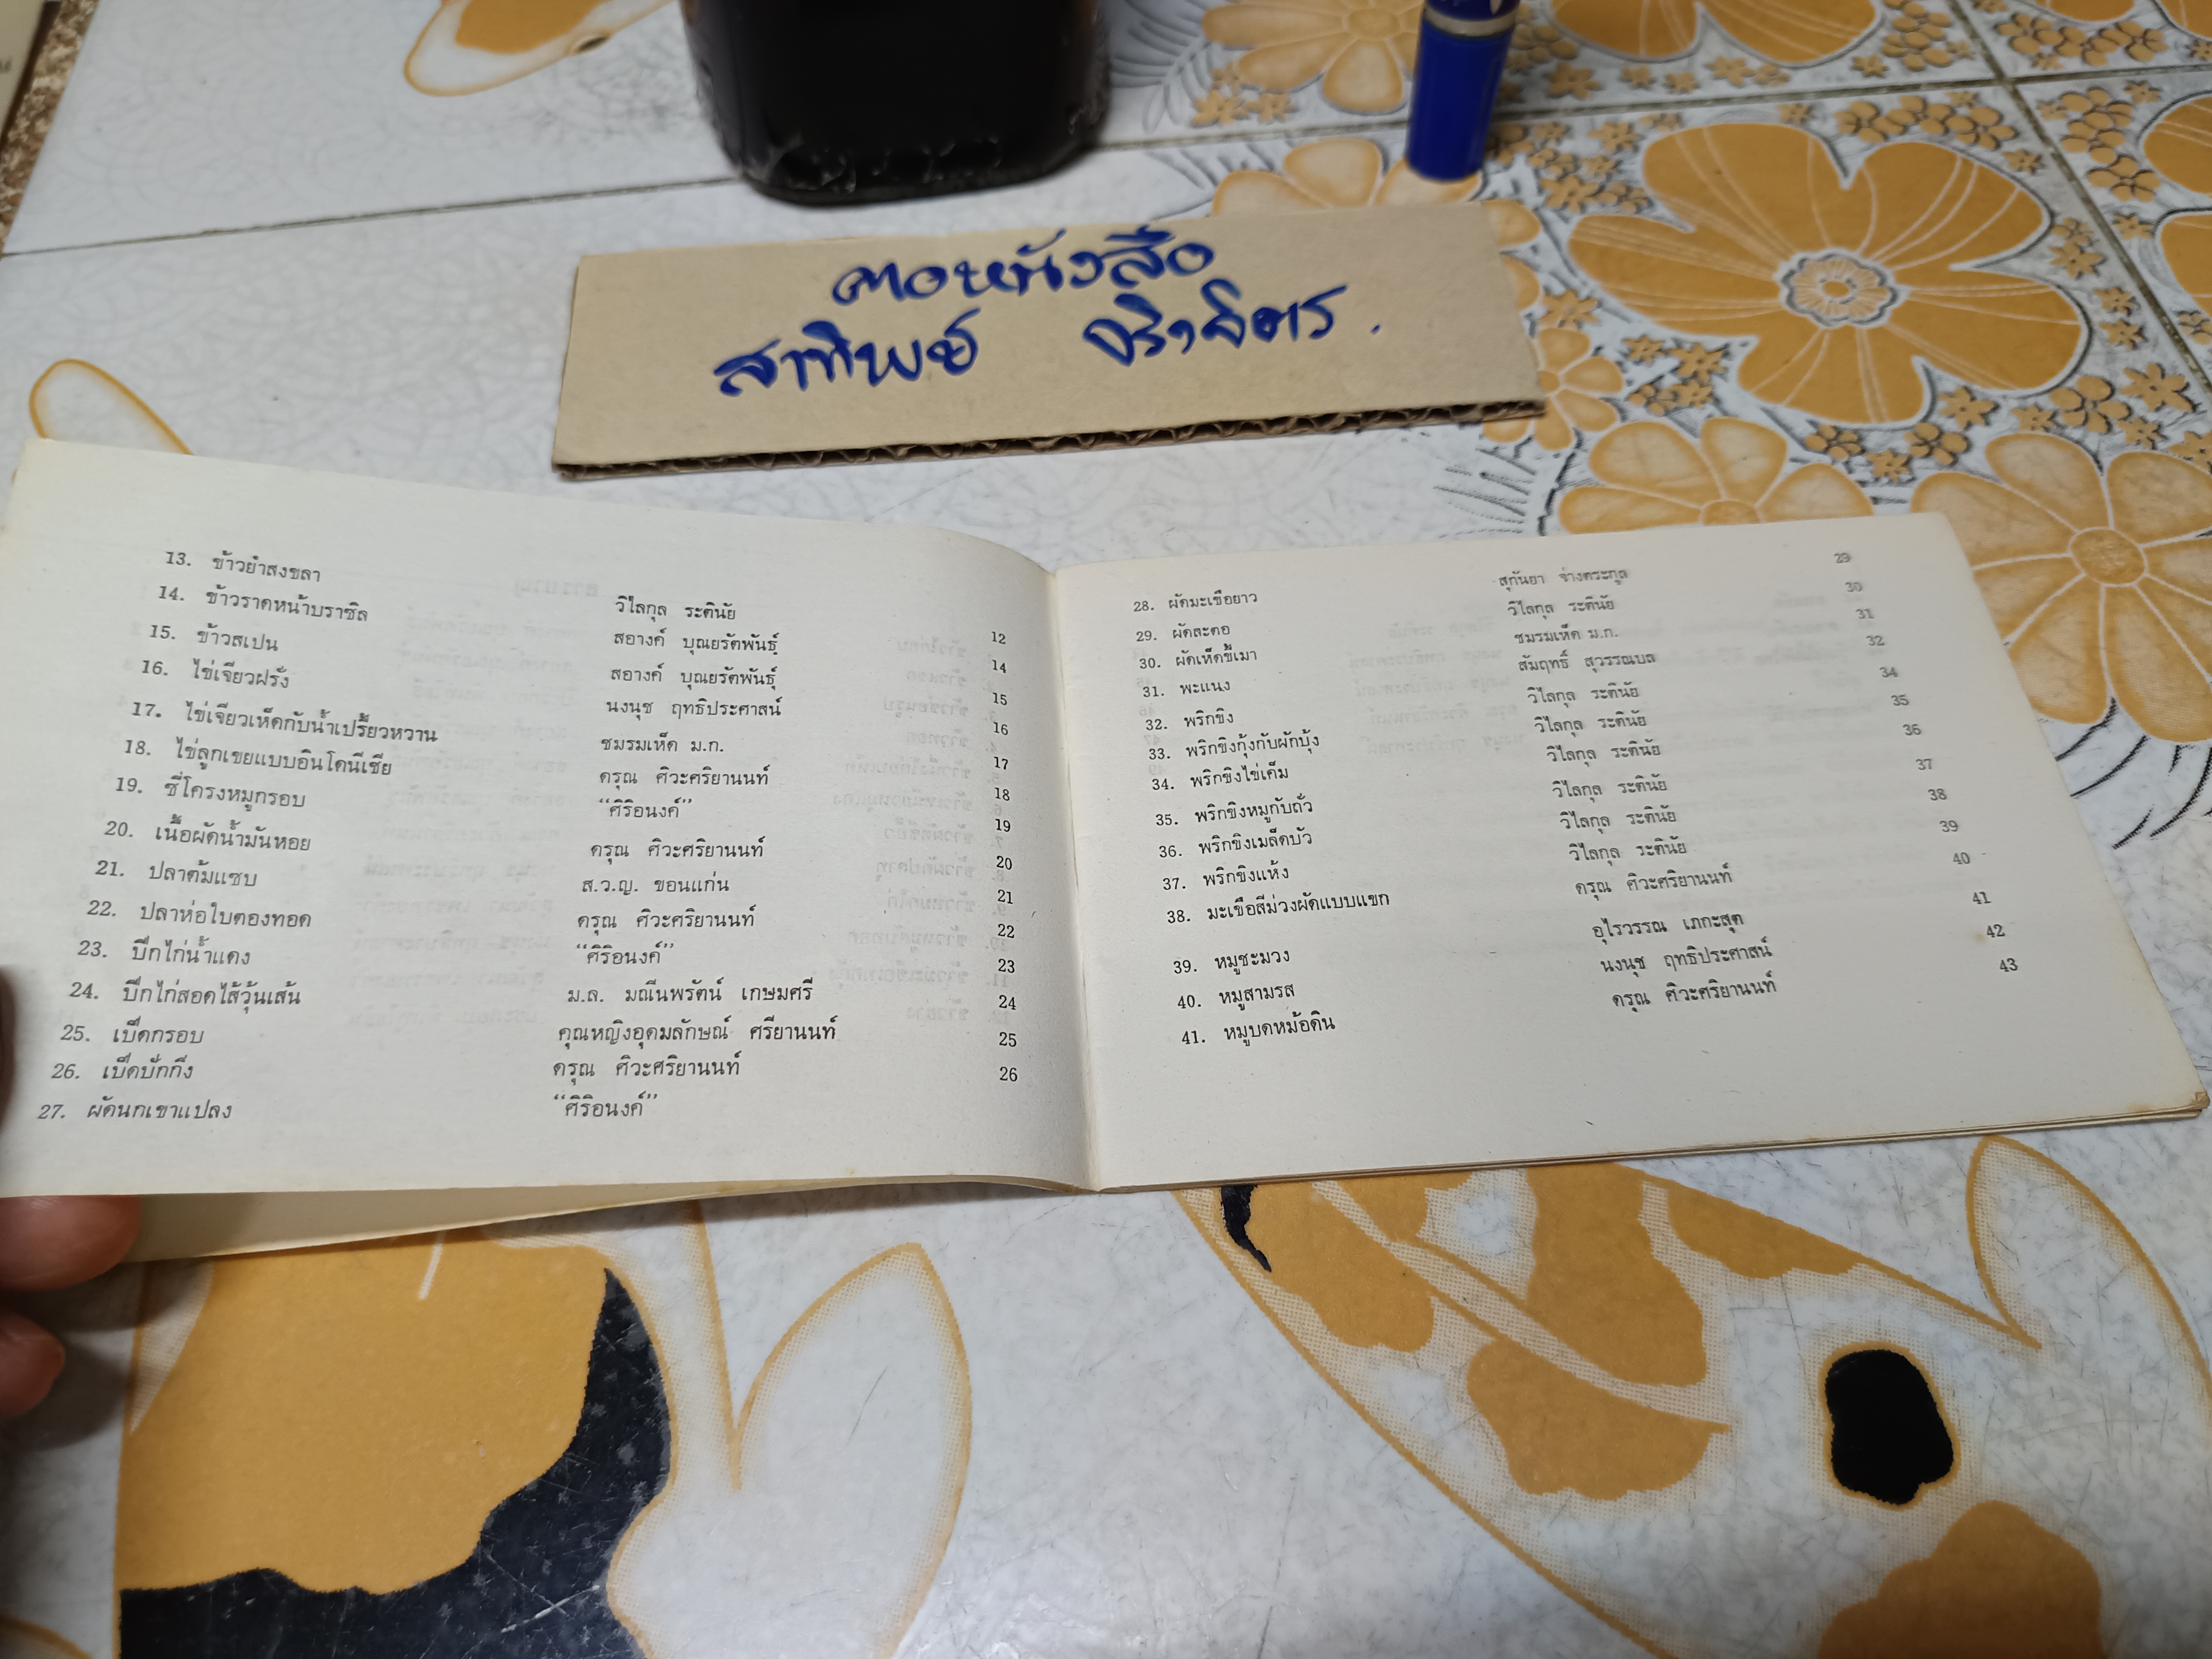 ตอหนังสือ
สาทิพย์ จริงจิตร.
13. ข้าวยำสงขลา วิไลกุล ระตินัย 12
14. ข้าวราดหน้าบราซิล สอางค์ บุณยรัตพันธุ์ 14
15. ข้าวสเปน สอางค์ บุณยรัตพันธุ์ 15
16. ไข่เจียวฝรั่ง นงนุช ฤทธิประศาสน์ 16
17. ไข่เจียวเห็ดกับน้ำเปรี้ยวหวาน ชมรมเห็ด ม.ก. 17
18. ไข่ลูกเขยแบบอินโดนีเซีย ดรุณ ศิวะศริยานนท์ 18
19. ซี่โครงหมูกรอบ “ศิริอนงค์” 19
20. เนื้อผัดน้ำมันหอย ดรุณ ศิวะศริยานนท์ 20
21. ปลาต้มแซบ ส.ว.ญ. ขอนแก่น 21
22. ปลาห่อใบตองทอด ดรุณ ศิวะศริยานนท์ 22
23. ปีกไก่น้ำแดง “ศิริอนงค์” 23
24. ปีกไก่สอดไส้วุ้นเส้น ม.ล. มณีนพรัตน์ เกษมศรี 24
25. เป็ดกรอบ คุณหญิงอุดมลักษณ์ ศรียานนท์ 25
26. เป็ดปักกิ่ง ดรุณ ศิวะศริยานนท์ 26
27. ผัดนกเขาแปลง “ศิริอนงค์”
28. ผัดมะเขือยาว สุกันยา จ่างตระกูล 29
29. ผัดสะตอ วิไลกุล ระตินัย 30
30. ผัดเห็ดขี้เมา ชมรมเห็ด ม.ก. 31
31. พะแนง สัมฤทธิ์ สุวรรณบล 32
32. พริกขิง วิไลกุล ระตินัย 34
33. พริกขิงกุ้งกับผักบุ้ง วิไลกุล ระตินัย 35
34. พริกขิงไข่เค็ม วิไลกุล ระตินัย 36
35. พริกขิงหมูกับถั่ว วิไลกุล ระตินัย 37
36. พริกขิงเมล็ดบัว วิไลกุล ระตินัย 38
37. พริกขิงแห้ง วิไลกุล ระตินัย 39
38. มะเขือสีม่วงผัดแบบแขก ดรุณ ศิวะศริยานนท์ 40
39. หมูชะมวง อุไรวรรณ เภกะสุต 41
40. หมูสามรส นงนุช ฤทธิประศาสน์ 42
41. หมูบดหม้อดิน ดรุณ ศิวะศริยานนท์ 43